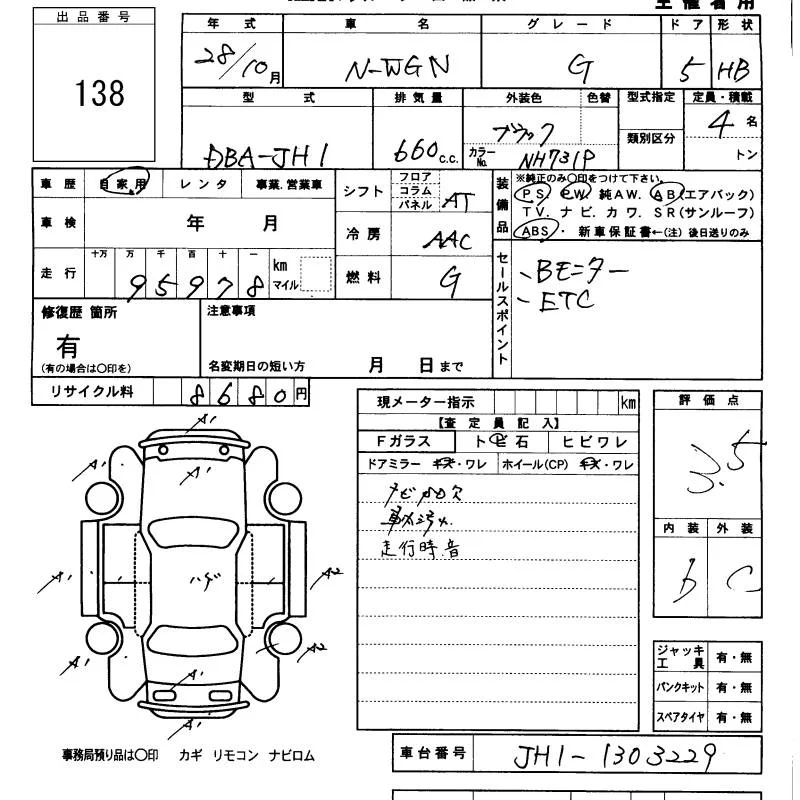 出品番号
138
年式 車名 グレード ドア 形状
28/10月 N-WGN G 5 HB
型式 排気量 外装色 色替 型式指定 定員・積載
DBA-JH1 660c.c. ブラック 類別区分 4名
カラーNo. NH731P トン
車歴 自家用 レンタ 事業.営業車
シフト フロア コラム パネル AT
車検 年 月
冷房 AAC
走行 十万 万 千 百 十 一
95978 km マイル
燃料 G
装備品 ※純正のみ〇印をつけて下さい。
PS. PW. 純AW. AB(エアバック)
TV. ナビ. カワ. SR(サンルーフ)
ABS・ 新車保証書←(注) 後日送りのみ
セールスポイント
Bモニター
ETC
修復歴 箇所 注意事項
有
(有の場合は〇印を) 名変期日の短い方 月 日まで
リサイクル料 8680円
現メーター指示 km
【査定員記入】
Fガラス トビ石 ヒビワレ
ドアミラー キズ・ワレ ホイール(CP) キズ・ワレ
ナビROM欠
車内汚れ
走行時音
評価点
3.5
内装 外装
b C
A1
A1
A1
A1
ハゲ
A1
A2
A1
A2
A1
A1
A1
ジャッキ工具 有・無
パンクキット 有・無
スペアタイヤ 有・無
事務局預り品は〇印 カギ リモコン ナビロム
車台番号 JH1-1303229